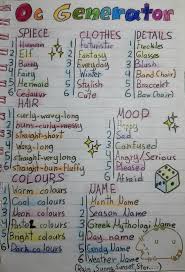 Oc Generator
SPIECE
1 Human
2 Elf
3 Bunny
4 Fairy
5 Mermaid
6
CLOTHES
1 Futuristic
2 Fantasy
3 Everyday
4 Winter
5 Stylish
6 Cute
DETAILS
1 Freckles
2 Glasses
3 Blush
4 (Hand Chain)
5 Bracelet
6 Bow (Hair)
HAIR
1 curly-wavy-long
2 buns-curly-messy
3 straight-short
4 Wavy-long
5 straight-very long
6 straight-bun-fluffy
MOOD
1 Happy
2 Sad
3 Confused
4 Angry/Serious
5 Pleased
6 Shy
COLOURS
1 Warm colours
2 Cool colours
3 Neon colours
4 Pastel colours
5 Bright colours
6 Dark colours
NAME
1 Month Name
2 Season Name
3 Greek Mythologi Name
4 Day name
5 Candy Name
6 Weather Name
(Rain, Sunny, Sunset, Star...)